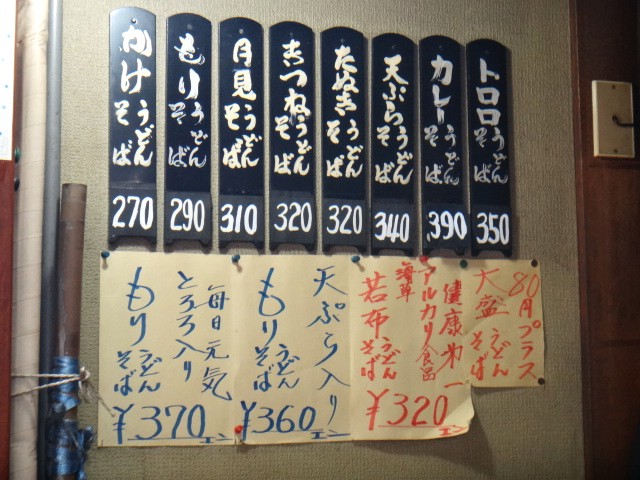 かけ
うどん
そば
270
もり
うどん
そば
290
月見
うどん
そば
310
きつね
うどん
そば
320
たぬき
うどん
そば
320
天ぷら
うどん
そば
340
カレー
うどん
そば
390
トロロ
うどん
そば
350
毎日元気
とろろ入り
もり
うどん
そば
¥370
エン
天ぷら入り
もり
うどん
そば
¥360
エン
健康第一
アルカリ食品
海草
若布
うどん
そば
¥320
エン
80円プラス
大盛
うどん
そば